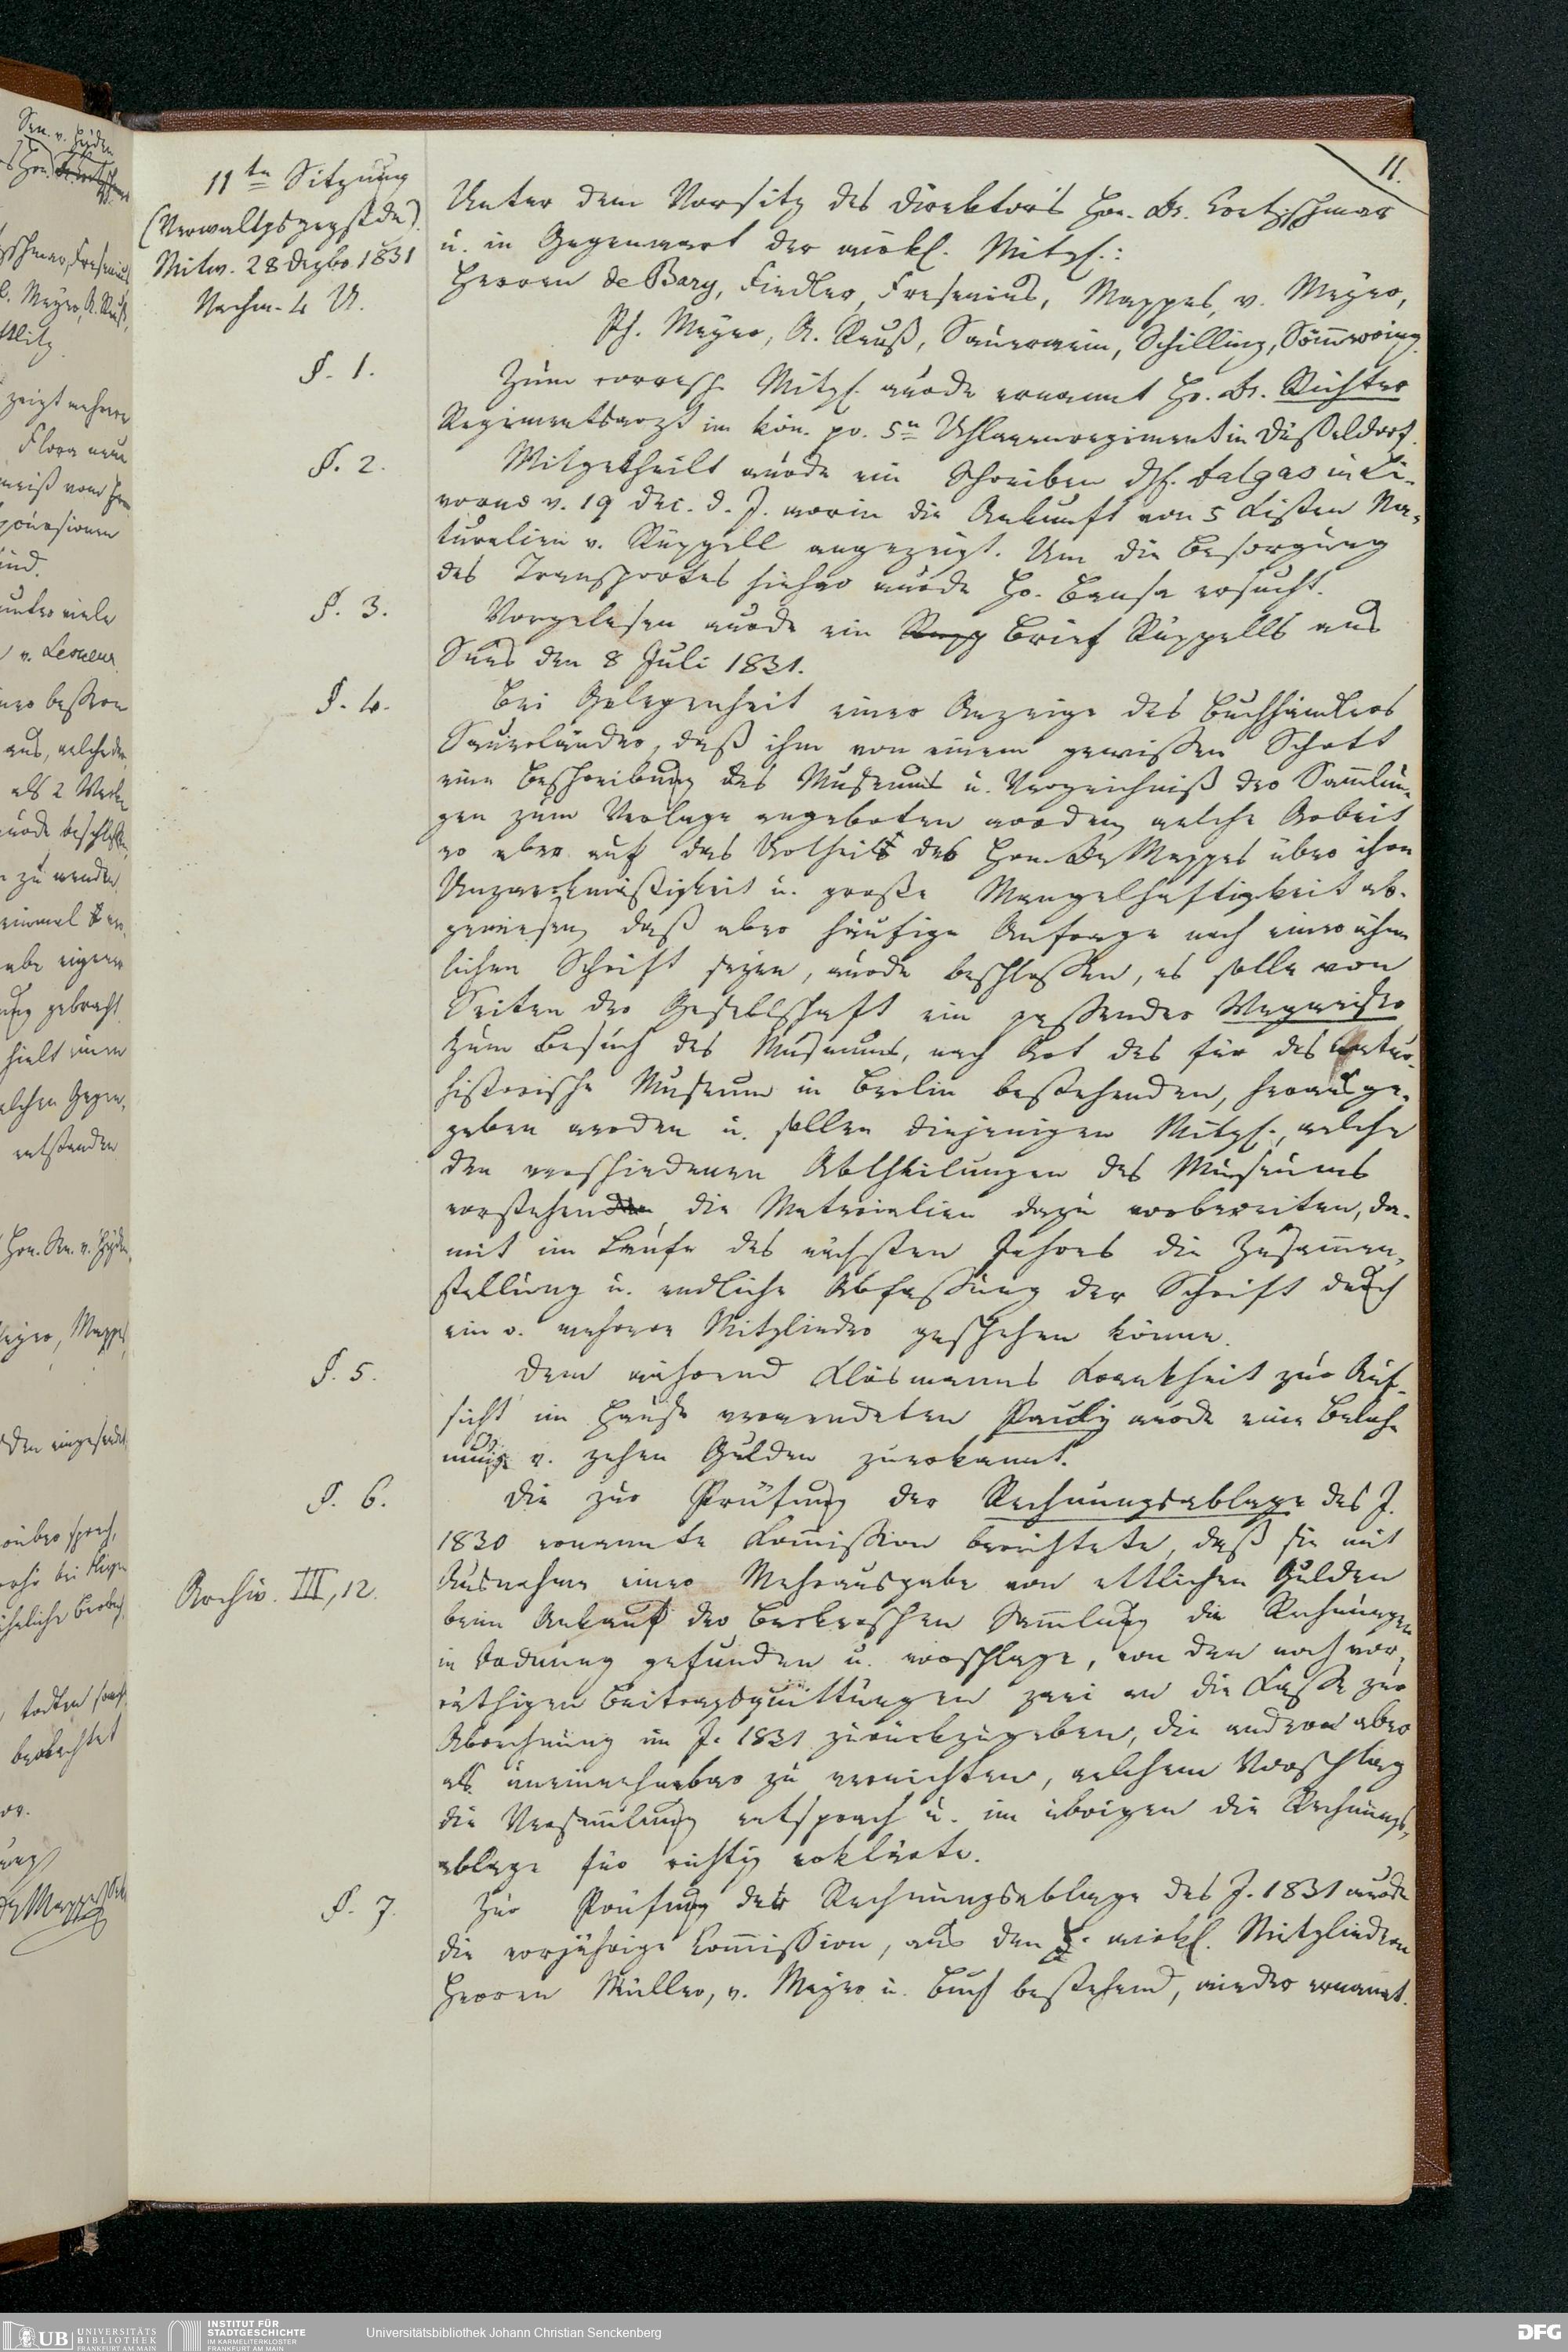 11.
11te Sitzung
(Verwaltgsgegstde)
Mitw. 28 Dezbr 1831
Nachm. 4 U.
Unter dem Vorsitz des Direktors Hrn. Dr. Cretzschmar
u. in Gegenwart der wirkl. Mitgl.:
Herren de Bary, Fiedler, Fresenius, Mappes, v. Meyer,
Ph. Meyer, A. Reuß, Sauerwein, Schilling, Sömmering.
§. 1.
Zum corresp. Mitgl. wurde ernannt Hr. Dr. Richter
Regimentsarzt im kön. pr. 5n Uhlanenregiment in Düsseldorf.
§. 2.
Mitgetheilt wurde ein Schreiben dH. Dalgas in Li-
vorno v. 19 Dec. d. J. worin die Ankunft von 5 Kisten Na-
turalien v. Rüppell angezeigt. Um die Besorgung
des Transportes hieher wurde Hr. Bansa ersucht.
§. 3.
Vorgelesen wurde ein Rupp Brief Rüppells aus
Sues den 8 Juli 1831.
§. 4.
Bei Gelegenheit einer Anzeige des Buchhändlers
Sauerländer, daß ihm von einem gewissen Schott
eine Beschreibung des Museums u. Verzeichniß der Samlun-
gen zum Verlage angeboten worden, welche Arbeit
er aber auf das Urtheil des Hrn. Dr Mappes über ihre
Unzweckmäßigkeit u. große Mangelhaftigkeit ab-
gewiesen, daß aber häufige Anfrage nach einer ähn
lichen Schrift seyen, wurde beschlossen, es solle von
Seiten der Gesellschaft ein passender Wegweiser
zum Besuch des Museums, nach Art des für das natur-
historische Museum in Berlin bestehenden, herausge-
geben werden u. sollen diejenigen Mitgl., welche
den verschiedenen Abtheilungen des Museums
vorstehen, die Materialien dazu vorbereiten, da-
mit im Laufe des nächsten Jahres die Zusamen-
stellung u. endliche Abfassung der Schrift durch
ein o. mehrere Mitglieder geschehen könne.
§. 5.
Dem während Klösmanns Krankheit zur Auf-
sicht im Hause verwendeten Pauly wurde eine Beloh
nung v. zehen Gulden zuerkannt.
§. 6.
Die zur Prüfung der Rechnungsablage des J.
1830 ernannte Komission berichtete, daß sie mit
Archiv. III, 12.
Ausnahme einer Mehrausgabe von ettlichen Gulden
beim Ankauf der Beckerschen Samlung die Rechnungen
in Ordnung gefunden u. vorschlage, von den noch vor-
räthigen Beitragsquittungen zwei an die Kasse zur
Abrechnung im J. 1831 zurückzugeben, die andern aber
als uneinnehmbar zu vernichten, welchem Vorschlag
die Versamlung entsprach u. im übrigen die Rechnungs-
ablage für richtig erklärte.
§. 7.
Zur Prüfung der Rechnungsablage des J. 1831 wurde
die vorjährige Comission, aus den wirkl. Mitgliedern
Herren Müller, v. Meyer u. Buch bestehend, wieder ernannt.
UB UNIVERSITÄTS
BIBLIOTHEK
FRANKFURT AM MAIN
INSTITUT FÜR
STADTGESCHICHTE
IM KARMELITERKLOSTER
FRANKFURT AM MAIN
Universitätsbibliothek Johann Christian Senckenberg
DFG